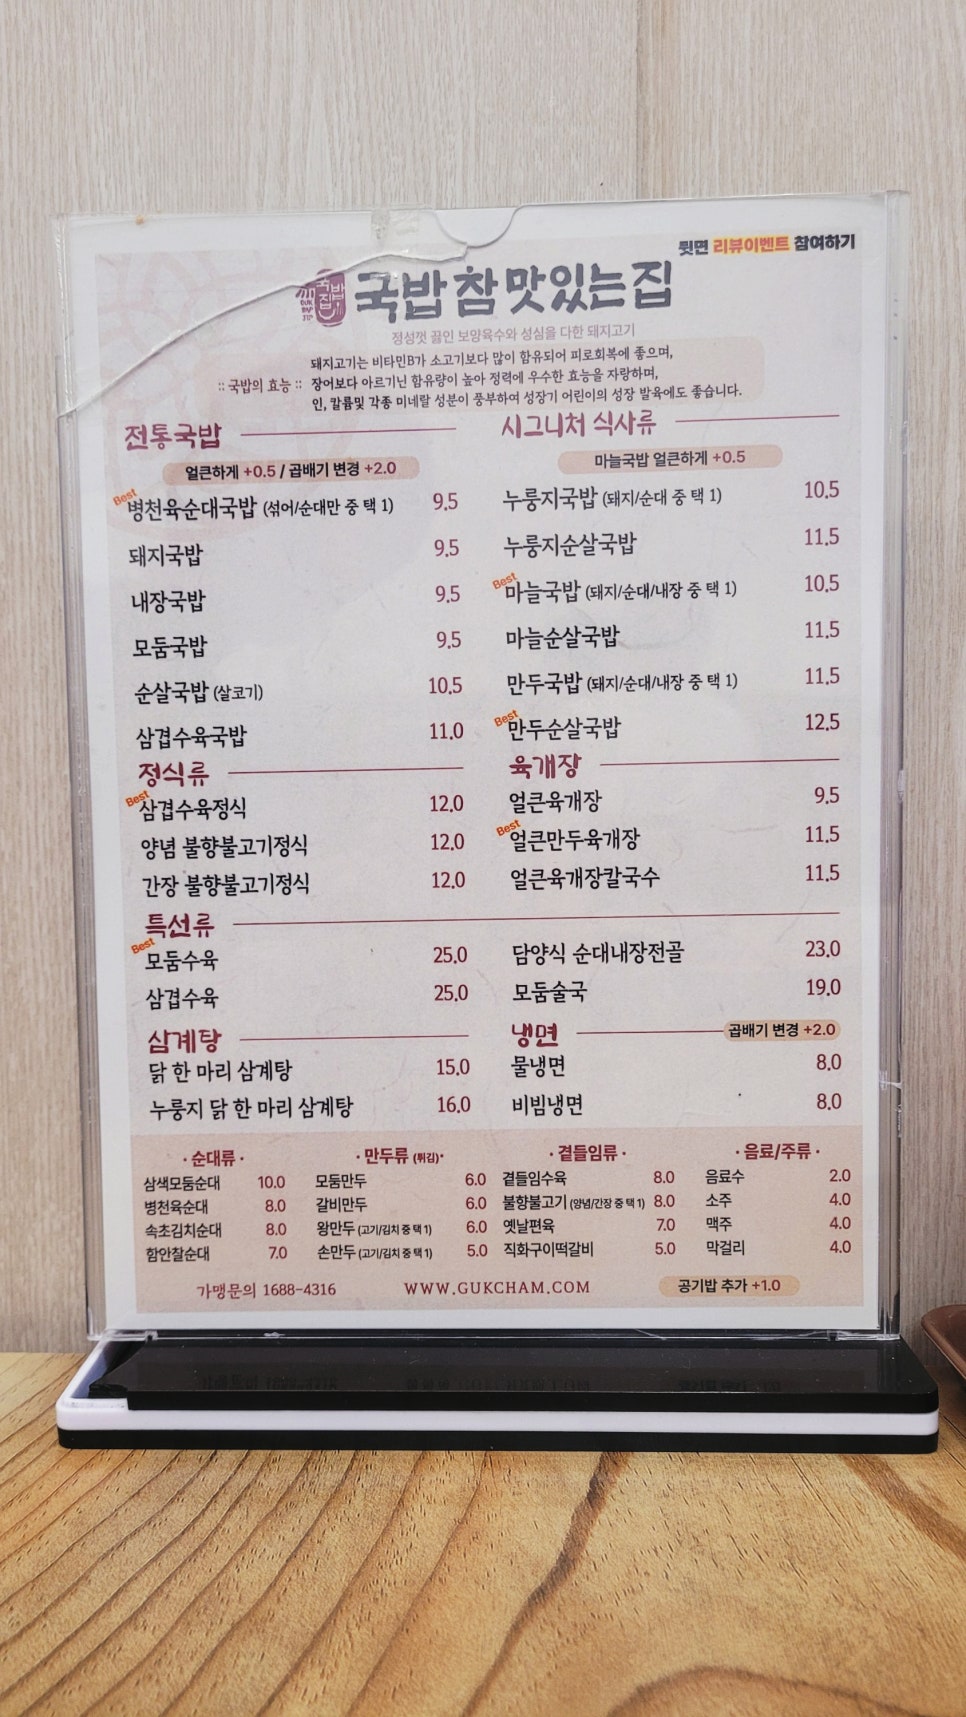 뒷면 리뷰이벤트 참여하기
국밥 참 맛있는 집
정성껏 끓인 보양육수와 성심을 다한 돼지고기
:: 국밥의 효능 ::
돼지고기는 비타민B가 소고기보다 많이 함유되어 피로회복에 좋으며,
장어보다 아르기닌 함유량이 높아 정력에 우수한 효능을 자랑하며,
인, 칼륨및 각종 미네랄 성분이 풍부하여 성장기 어린이의 성장 발육에도 좋습니다.
전통국밥
얼큰하게 +0.5 / 곱배기 변경 +2.0
Best
병천육순대국밥 (섞어/순대만 중 택 1) 9.5
돼지국밥 9.5
내장국밥 9.5
모둠국밥 9.5
순살국밥 (살코기) 10.5
삼겹수육국밥 11.0
시그니처 식사류
마늘국밥 얼큰하게 +0.5
누룽지국밥 (돼지/순대 중 택 1) 10.5
누룽지순살국밥 11.5
Best
마늘국밥 (돼지/순대/내장 중 택 1) 10.5
마늘순살국밥 11.5
만두국밥 (돼지/순대/내장 중 택 1) 11.5
Best
만두순살국밥 12.5
정식류
Best
삼겹수육정식 12.0
양념 불향불고기정식 12.0
간장 불향불고기정식 12.0
육개장
얼큰육개장 9.5
Best
얼큰만두육개장 11.5
얼큰육개장칼국수 11.5
특선류
Best
모둠수육 25.0
삼겹수육 25.0
담양식 순대내장전골 23.0
모둠술국 19.0
삼계탕
닭 한 마리 삼계탕 15.0
누룽지 닭 한 마리 삼계탕 16.0
냉면 곱배기 변경 +2.0
물냉면 8.0
비빔냉면 8.0
· 순대류 ·
삼색모둠순대 10.0
병천육순대 8.0
속초김치순대 8.0
함안찰순대 7.0
· 만두류 (튀김) ·
모둠만두 6.0
갈비만두 6.0
왕만두 (고기/김치 중 택 1) 6.0
손만두 (고기/김치 중 택 1) 5.0
· 곁들임류 ·
곁들임수육 8.0
불향불고기 (양념/간장 중 택 1) 8.0
옛날편육 7.0
직화구이떡갈비 5.0
· 음료/주류 ·
음료수 2.0
소주 4.0
맥주 4.0
막걸리 4.0
가맹문의 1688-4316
WWW.GUKCHAM.COM
공기밥 추가 +1.0